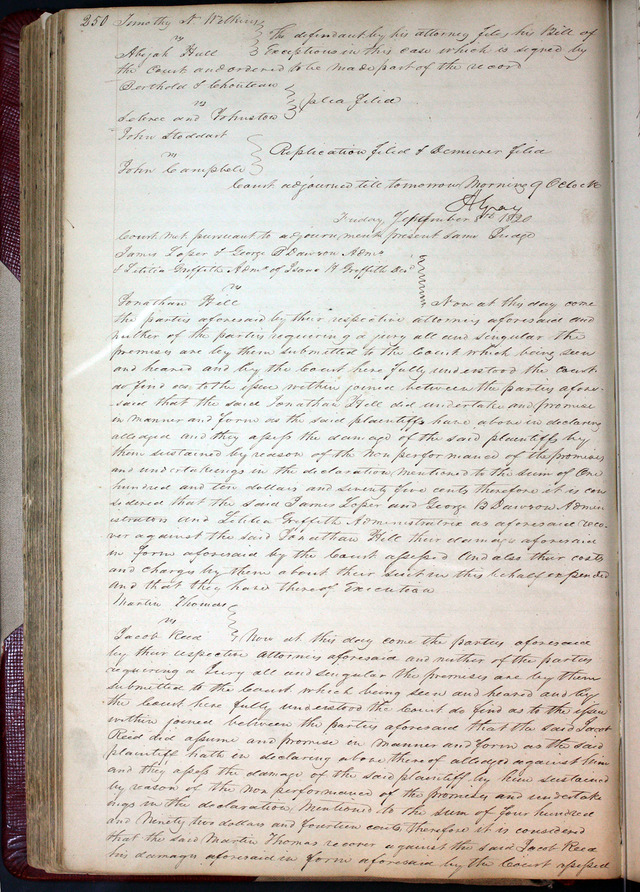 250 Timothy N Wilkins
vs The defendant by his attorney files his Bill of
Abijah Hull Exceptions in this case which is signed by
the Court and ordered to be made part of the record
Berthold & Chouteau
vs plea filed
Leberee and Johnston
John Stoddart
vs Replication filed & Demurer filed
John Campbell
Court adjourned till tomorrow Morning 9 Oclock
A Gray
Friday September 1820
Court met pursuant to adjournment present same Judge
James Loper & George B Dawson Admrs
& Letitia Griffith Admx of Isaac H Griffith Decd
vs
Jonathan Hill Now at this day come
the parties aforesaid by their respective attorneys aforesaid and
neither of the parties requiring a jury all and singular the
premises are by them submitted to the Court which being seen
and heared and by the Court here fully understood the Court
do find as to the issue within joined between the parties afore-
said that the said Jonathan Hill did undertake and promise
in manner and form as the said plaintiffs have above in declaring
alledged and they assess the damage of the said plaintiffs by
them sustained by reason of the non performance of the promises
and undertakings in the declaration mentioned to the sum of One
hundred and ten dollars and seventy five cents therefore it is con
sidered that the said James Loper and George B Dawson Admin
istrators and Letitia Griffith Administratrix as aforesaid reco-
ver against the said Jonathan Hill their damages aforesaid
in form aforesaid by the Court assessed And also their costs
and charges by them about their suit in this behalf expended
and that they have thereof Execution
Martin Thomas
vs
Jacob Reed Now at this day come the parties aforesaid
by their respective Attorneys aforesaid and neither of the parties
requiring a Jury all and singular the premises are by them
submitted to the Court which being seen and heared and by
the Court here fully understood the Court do find as to the issue
within joined between the parties aforesaid that the said Jacob
Reid did assume and promise in manner and form as the said
plaintiff hath in declaring above thereof alledged against him
and they assess the damage of the said plaintiff by him sustained
by reason of the non performance of the promises and undertake
ings in the declaration Mentioned to the sum of four hundred
and Ninety two dollars and fourteen cents therefore it is considered
that the said Martin Thomas recover against the said Jacob Reed
his damages aforesaid in form aforesaid by the Court assessed